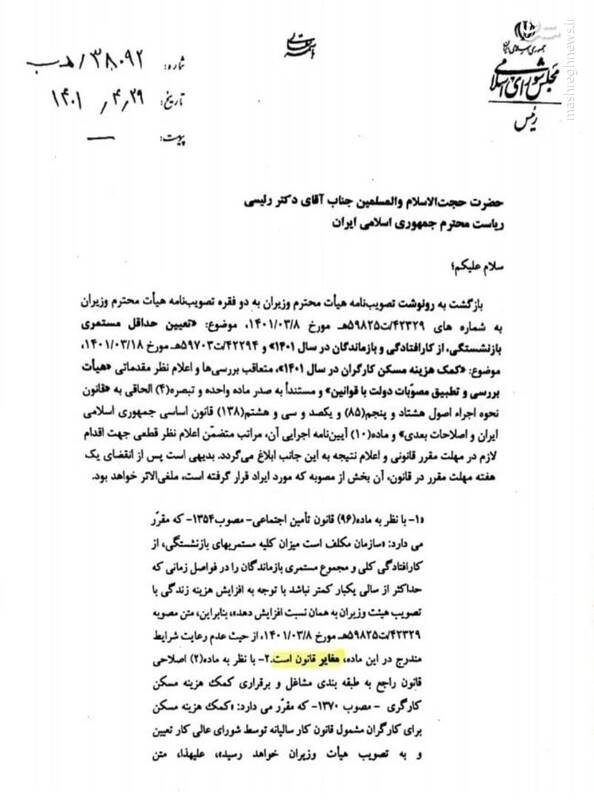 جمهوری اسلامی ایران
مجلس شورای اسلامی
رئیس
شماره: ۳۸۰۹۲/هـ ب
تاریخ: ۱۴۰۱/۴/۲۹
پیوست: —
mashreghnews.ir
حضرت حجت‌الاسلام والمسلمین جناب آقای دکتر رئیسی
ریاست محترم جمهوری اسلامی ایران
سلام علیکم؛
بازگشت به رونوشت تصویب‌نامه هیأت محترم وزیران به دو فقره تصویب‌نامه هیأت محترم وزیران
به شماره های ۴۲۳۲۹/ت۵۹۸۲۵هـ مورخ ۱۴۰۱/۰۳/۸، موضوع: «تعیین حداقل مستمری
بازنشستگی، از کارافتادگی و بازماندگان در سال ۱۴۰۱» و ۴۲۲۹۴/ت۵۹۷۰۳هـ مورخ ۱۴۰۱/۰۳/۱۸،
موضوع: «کمک هزینه مسکن کارگران در سال ۱۴۰۱»، متعاقب بررسی‌ها و اعلام نظر مقدماتی «هیأت
بررسی و تطبیق مصوّبات دولت با قوانین» و مستنداً به صدر ماده واحده و تبصره(۴) الحاقی به «قانون
نحوه اجراء اصول هشتاد و پنجم(۸۵) و یکصد و سی و هشتم(۱۳۸) قانون اساسی جمهوری اسلامی
ایران و اصلاحات بعدی» و ماده(۱۰) آیین‌نامه اجرایی آن، مراتب متضمّن اعلام نظر قطعی جهت اقدام
لازم در مهلت مقرر قانونی و اعلام نتیجه به این جانب ابلاغ می‌گردد. بدیهی است پس از انقضای یک
هفته مهلت مقرر در قانون، آن بخش از مصوبه که مورد ایراد قرار گرفته است، ملغی‌الاثر خواهد بود.
«۱- با نظر به ماده(۹۶) قانون تأمین اجتماعی- مصوب۱۳۵۴- که مقرّر
می دارد: «سازمان مکلف است میزان کلیه مستمریهای بازنشستگی، از
کارافتادگی کلی و مجموع مستمری بازماندگان را در فواصل زمانی که
حداکثر از سالی یکبار کمتر نباشد با توجه به افزایش هزینه زندگی با
تصویب هیئت وزیران به همان نسبت افزایش دهد»، بنابراین، متن مصوبه
۴۲۳۲۹/ت۵۹۸۲۵هـ مورخ ۱۴۰۱/۰۳/۸، از حیث عدم رعایت شرایط
مندرج در این ماده، مغایر قانون است.۲- با نظر به ماده(۲) اصلاحی
قانون راجع به طبقه بندی مشاغل و برقراری کمک هزینه مسکن
کارگری - مصوب ۱۳۷۰- که مقرّر می دارد: «کمک هزینه مسکن
برای کارگران مشمول قانون کار سالیانه توسط شورای عالی کار تعیین
و به تصویب هیأت وزیران خواهد رسید»، علیهذا، متن